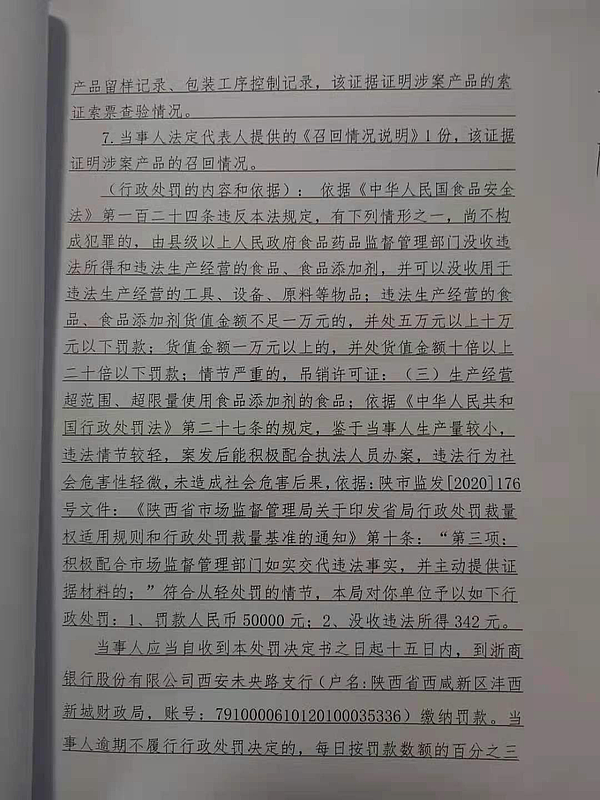 产品留样记录、包装工序控制记录，该证据证明涉案产品的索
证索票查验情况。
7.当事人法定代表人提供的《召回情况说明》1份，该证据
证明涉案产品的召回情况。
（行政处罚的内容和依据）：依据《中华人民国食品安全
法》第一百二十四条违反本法规定，有下列情形之一，尚不构
成犯罪的，由县级以上人民政府食品药品监督管理部门没收违
法所得和违法生产经营的食品、食品添加剂，并可以没收用于
违法生产经营的工具、设备、原料等物品；违法生产经营的食
品、食品添加剂货值金额不足一万元的，并处五万元以上十万
元以下罚款；货值金额一万元以上的，并处货值金额十倍以上
二十倍以下罚款；情节严重的，吊销许可证：（三）生产经营
超范围、超限量使用食品添加剂的食品；依据《中华人民共和
国行政处罚法》第二十七条的规定，鉴于当事人生产量较小，
违法情节较轻，案发后能积极配合执法人员办案，违法行为社
会危害性轻微，未造成社会危害后果，依据：陕市监发[2020]176
号文件：《陕西省市场监督管理局关于印发省局行政处罚裁量
权适用规则和行政处罚裁量基准的通知》第十条：“第三项：
积极配合市场监督管理部门如实交代违法事实，并主动提供证
据材料的；”符合从轻处罚的情节，本局对你单位予以如下行
政处罚：1、罚款人民币50000元；2、没收违法所得342元。
当事人应当自收到本处罚决定书之日起十五日内，到浙商
银行股份有限公司西安未央路支行（户名：陕西省西咸新区沣西
新城财政局，账号：7910000610120100035336）缴纳罚款。当
事人逾期不履行行政处罚决定的，每日按罚款数额的百分之三